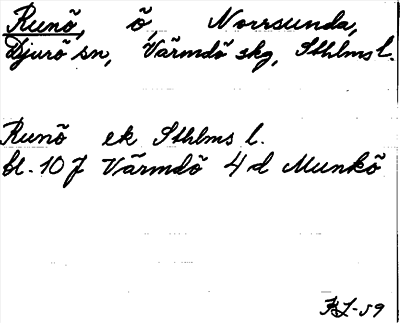 Runö, ö, Norrsunda,
Djurö sn, Värmdö skg, Sthlms l.
Runö ek Sthlms l.
bl. 107 Värmdö 4 d Munkö